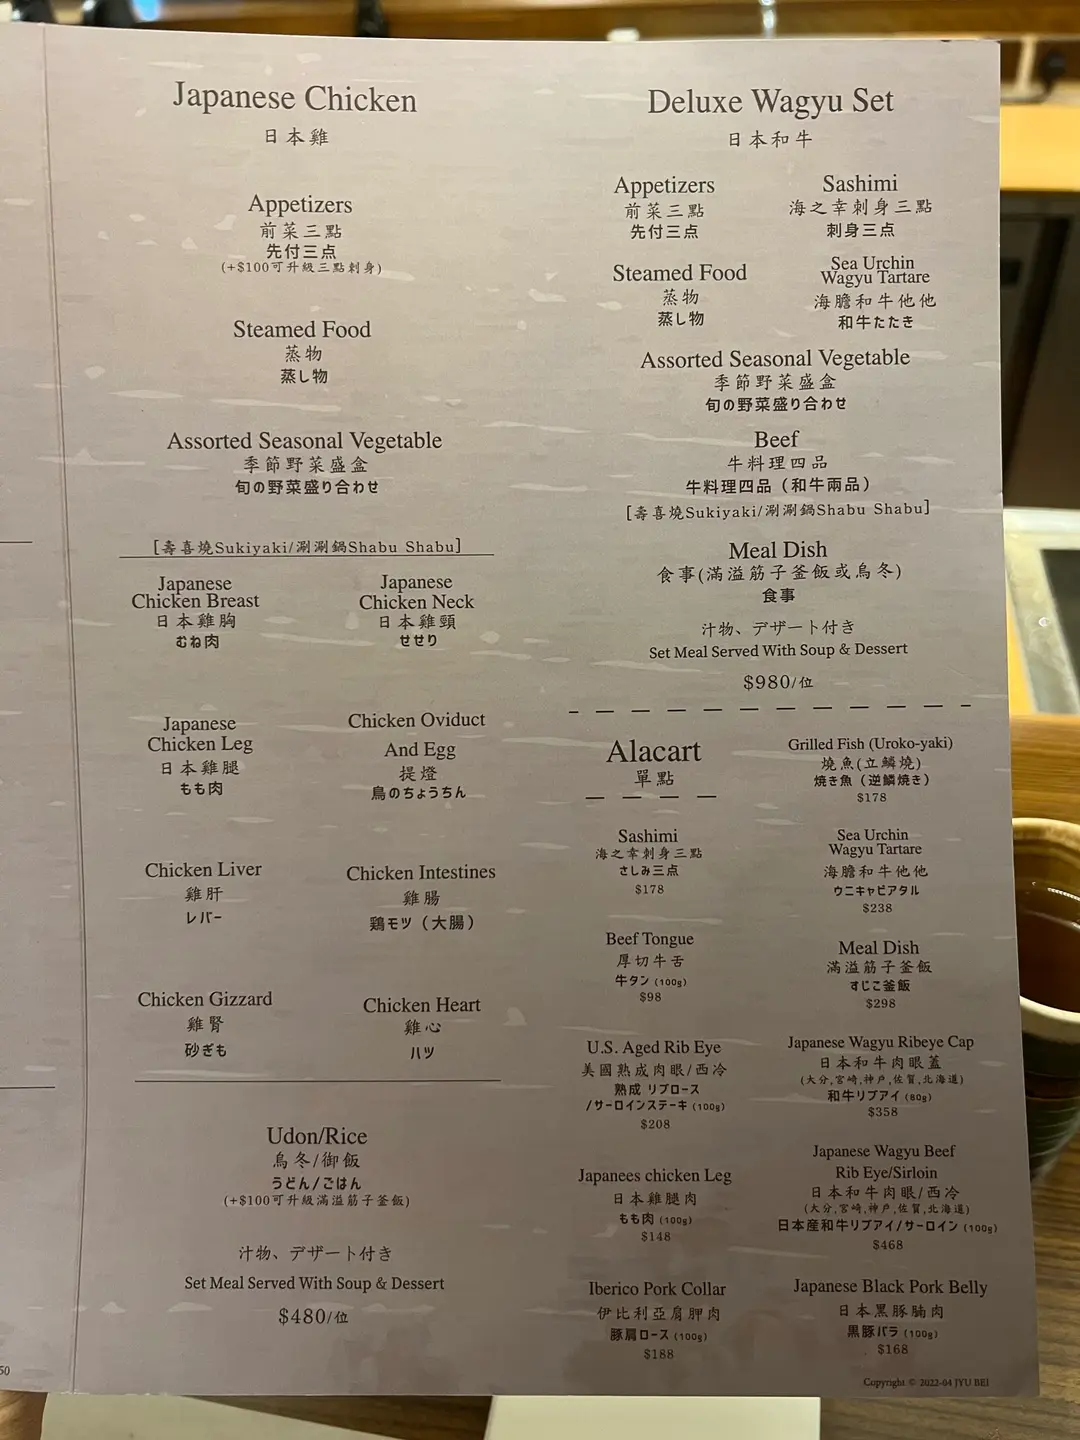 Japanese Chicken
日本雞
Appetizers
前菜三點
先付三点
(+$100可升級三點刺身)
Steamed Food
蒸物
蒸し物
Assorted Seasonal Vegetable
季節野菜盛盒
旬の野菜盛り合わせ
[壽喜燒Sukiyaki/涮涮鍋Shabu Shabu]
Japanese
Chicken Breast
日本雞胸
むね肉
Japanese
Chicken Neck
日本雞頸
せせり
Japanese
Chicken Leg
日本雞腿
もも肉
Chicken Oviduct
And Egg
提燈
鳥のちょうちん
Chicken Liver
雞肝
レバー
Chicken Intestines
雞腸
鶏モツ（大腸）
Chicken Gizzard
雞腎
砂ぎも
Chicken Heart
雞心
ハツ
Udon/Rice
烏冬/御飯
うどん/ごはん
(+$100可升級滿溢筋子釜飯)
汁物、デザート付き
Set Meal Served With Soup & Dessert
$480/位
50
Deluxe Wagyu Set
日本和牛
Appetizers
前菜三點
先付三点
Sashimi
海之幸刺身三點
刺身三点
Steamed Food
蒸物
蒸し物
Sea Urchin
Wagyu Tartare
海膽和牛他他
和牛たたき
Assorted Seasonal Vegetable
季節野菜盛盒
旬の野菜盛り合わせ
Beef
牛料理四品
牛料理四品（和牛兩品）
[壽喜燒Sukiyaki/涮涮鍋Shabu Shabu]
Meal Dish
食事(滿溢筋子釜飯或烏冬)
食事
汁物、デザート付き
Set Meal Served With Soup & Dessert
$980/位
Alacart
單點
Grilled Fish (Uroko-yaki)
燒魚(立鱗燒)
焼き魚（逆鱗焼き）
$178
Sashimi
海之幸刺身三點
さしみ三点
$178
Sea Urchin
Wagyu Tartare
海膽和牛他他
ウニキャビアタル
$238
Beef Tongue
厚切牛舌
牛タン (100g)
$98
Meal Dish
滿溢筋子釜飯
すじこ釜飯
$298
U.S. Aged Rib Eye
美國熟成肉眼/西冷
熟成 リブロース
/サーロインステーキ (100g)
$208
Japanese Wagyu Ribeye Cap
日本和牛肉眼蓋
(大分,宮崎,神戶,佐賀,北海道)
和牛リブアイ (80g)
$358
Japanees chicken Leg
日本雞腿肉
もも肉 (100g)
$148
Japanese Wagyu Beef
Rib Eye/Sirloin
日本和牛肉眼/西冷
(大分,宮崎,神戶,佐賀,北海道)
日本産和牛リブアイ/サーロイン (100g)
$468
Iberico Pork Collar
伊比利亞肩胛肉
豚肩ロース (100g)
$188
Japanese Black Pork Belly
日本黑豚腩肉
黒豚バラ (100g)
$168
Copyright © 2022-04 JYU BEI